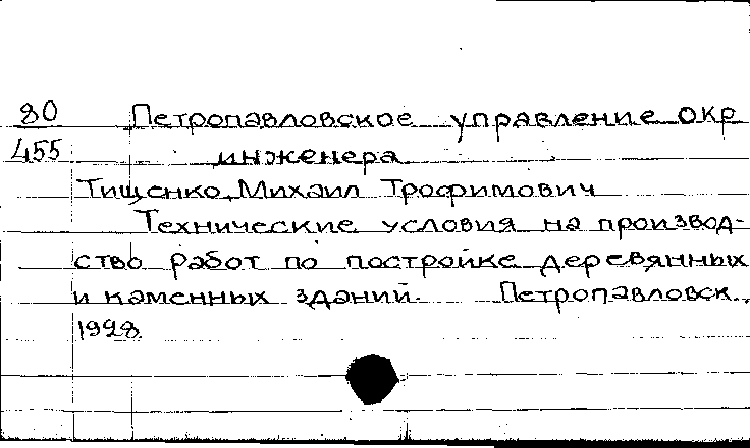 80 Петропавловское управление окр
455 инженера
Тищенко, Михаил Трофимович
Технические условия на производ-
ство работ по постройке деревянных
и каменных зданий. Петропавловск,
1928